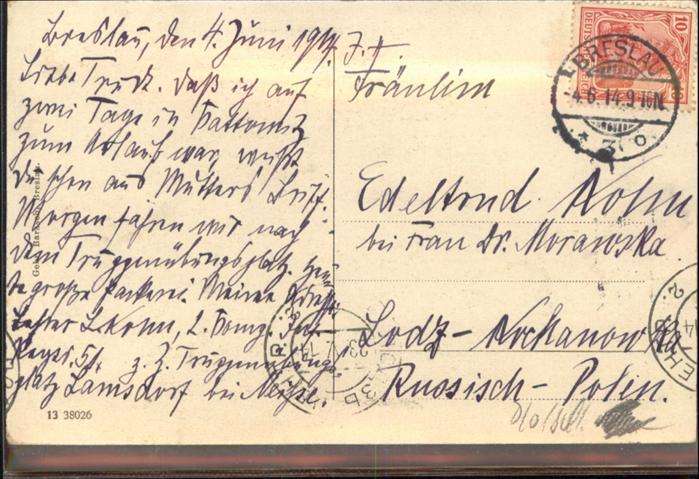 Breslau, den 4. Juni 1914.
Liebe Trude. Daß ich auf
zwei Tage in Kattowitz
zum Urlaub war, weißt
Du schon aus Mutters Brief.
Morgen fahren wir nach
dem Truppenübungsplatz.
große Packerei. Meine Adresse
Kohn, 2. Komp. Inf.
Regt. 51. z. Z. Truppenübungs-
platz Lamsdorf bei Neiße.
13 38026
Fräulein
Edeltrud Kohn
bei Frau Dr. Morawska
Lodz-Rochanowka
Russisch-Polen.
BRESLAU
4.6.14.9-10N.
10